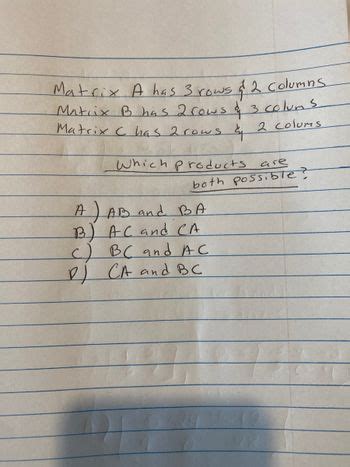 Matrix A has 3 rows & 2 columns
Matrix B has 2 rows & 3 colums
Matrix C has 2 rows & 2 colums
Which products are
both possible?
A) AB and BA
B) AC and CA
C) BC and AC
D) CA and BC